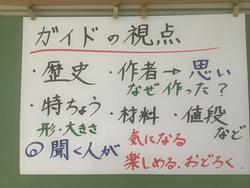 ガイドの視点
・歴史 ・作者→思い
なぜ作った？
・特ちょう ・材料 ・値段
など
形・大きさ
◎聞く人が 気になる
楽しめる、おどろく